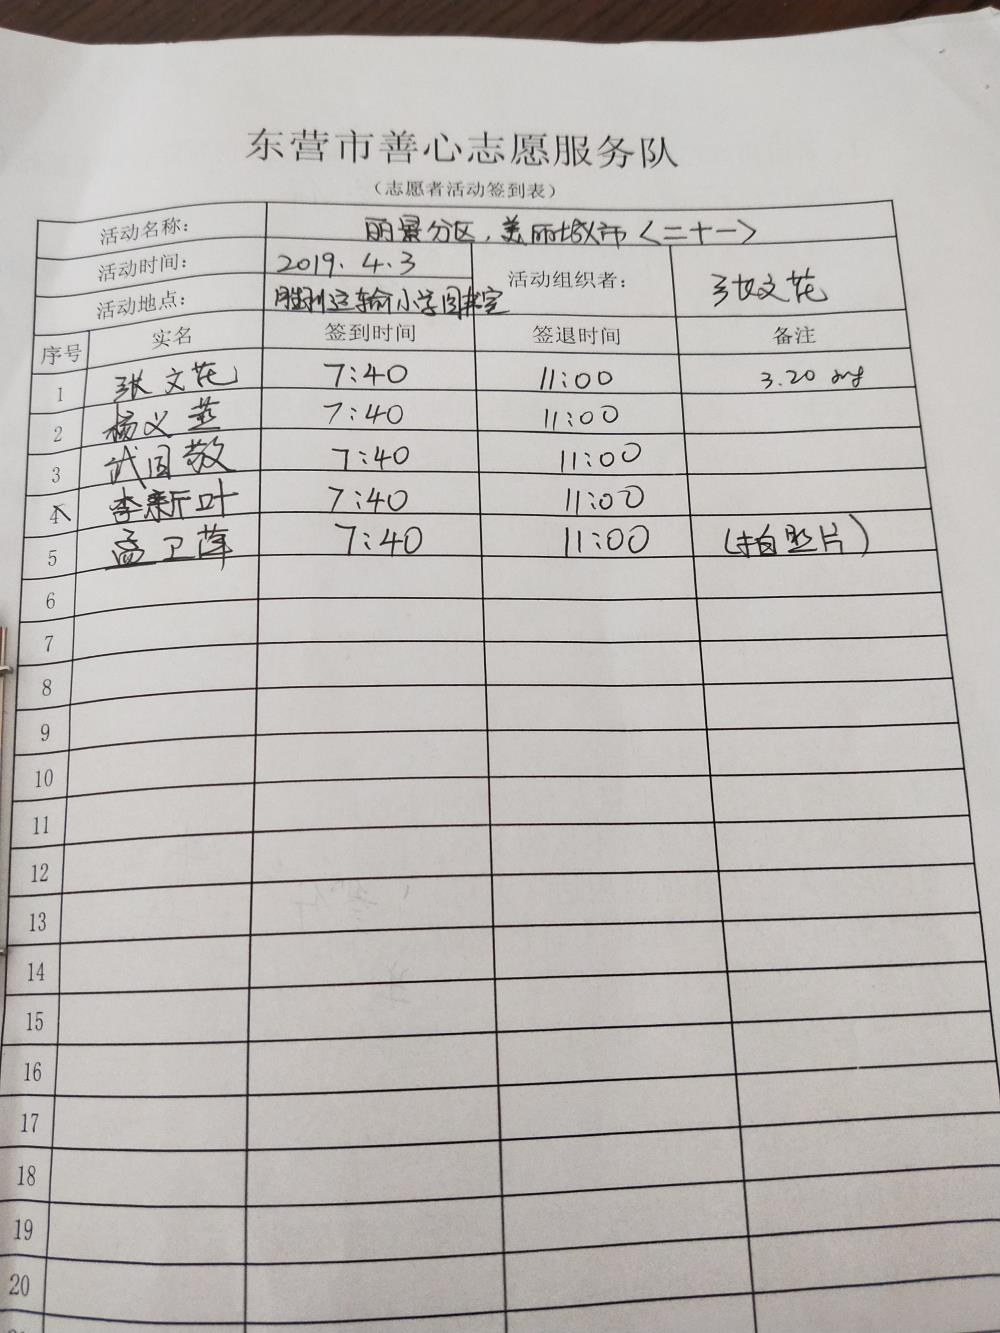 东营市善心志愿服务队
（志愿者活动签到表）
活动名称： 丽景分区，美丽城市〈二十一〉
活动时间： 2019.4.3 活动组织者： 张文花
活动地点： 胜利运输小学图书室
序号 实名 签到时间 签退时间 备注
1 张文花 7:40 11:00 3.20
2 杨义燕 7:40 11:00
3 武国敬 7:40 11:00
4 李新叶 7:40 11:00
5 孟卫萍 7:40 11:00 （拍照片）
6
7
8
9
10
11
12
13
14
15
16
17
18
19
20